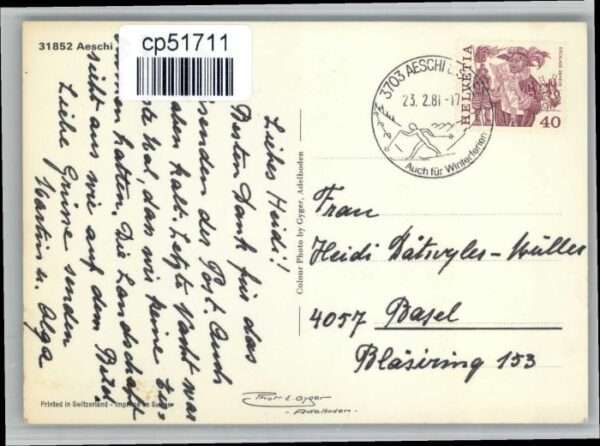 31852 Aeschi
cp51711
Liebes Heidi!
Besten Dank für das
senden der Post. Auch
haben kalt. Letzte Nacht war
Mal, dass wir keine Eis
hatten. Die Landschaft
sieht aus wie auf dem Bild.
Liebe Grüsse senden
Martin u. Olga
Printed in Switzerland - Imprimé en Suisse
Colour Photo by Gyger, Adelboden
3703 AESCHI
23. 2.81-17
Auch für Winterferien
HELVETIA
40
Frau
Heidi Dätwyler-Müller
4057 Basel
Bläsiring 153
Phot. E. Gyger
Adelboden